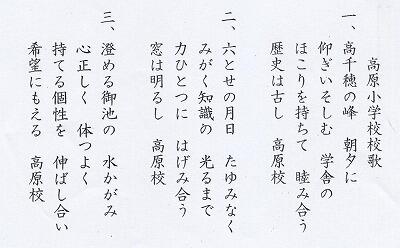 高原小学校校歌
一、高千穂の峰　朝夕に
仰ぎいそしむ　学舎の
ほこりを持ちて　睦み合う
歴史は古し　高原校
二、六とせの月日　たゆみなく
みがく知識の　光るまで
力ひとつに　はげみ合う
窓は明るし　高原校
三、澄める御池の　水かがみ
心正しく　体つよく
持てる個性を　伸ばし合い
希望にもえる　高原校